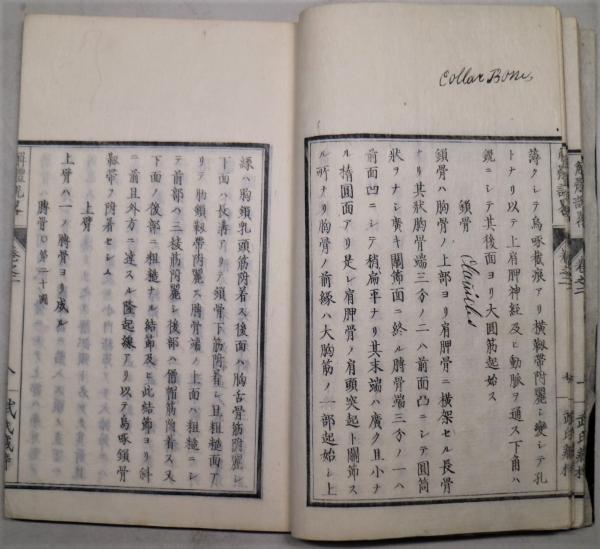 Collar Bone
薄クシテ烏啄截痕アリ横靱帯附麗シ變シテ孔
トナリ以テ上肩胛神経及ヒ動脈ヲ通ス下角ハ
鋭ニシテ其後面ヨリ大圓筋起始ス
鎖骨 Clavicle
鎖骨ハ胸骨ノ上部ヨリ肩胛骨ニ横架セル長骨
ナリ其狀胸骨端三分ノ二ハ前面凸ニシテ圓筒
狀ヲナシ廣キ關節面ニ終ル髆骨端三分ノ一ハ
前面凹ニシテ稍扁平ナリ其末端ハ廣ク且小ナ
ル楕圓面アリ是レ肩胛骨ノ肩頭突起ト關節ス
ル所ナリ胸骨ノ前緣ハ大胸筋ノ一部起始シ上
緣ハ胸鎖乳頭筋附着ス後面ハ胸舌骨筋附麗シ
下面ハ長溝アリテ鎖骨下筋附着シ且粗糙面ア
リテ肋鎖靱帯附麗ス髆骨端ノ上面ハ粗糙ニシ
テ前部ハ三稜筋附麗シ後部ハ僧帽筋附着ス又
下面ノ後部ニ粗糙ナル結節及ヒ此結節ヨリ斜
ニ前且外方ニ達スル隆起線アリ以テ烏啄鎖骨
靱帯ヲ附着セシム
上臂
上臂ハ一ノ髆骨ヨリ成ル
髆骨 第二十圖
卷之二